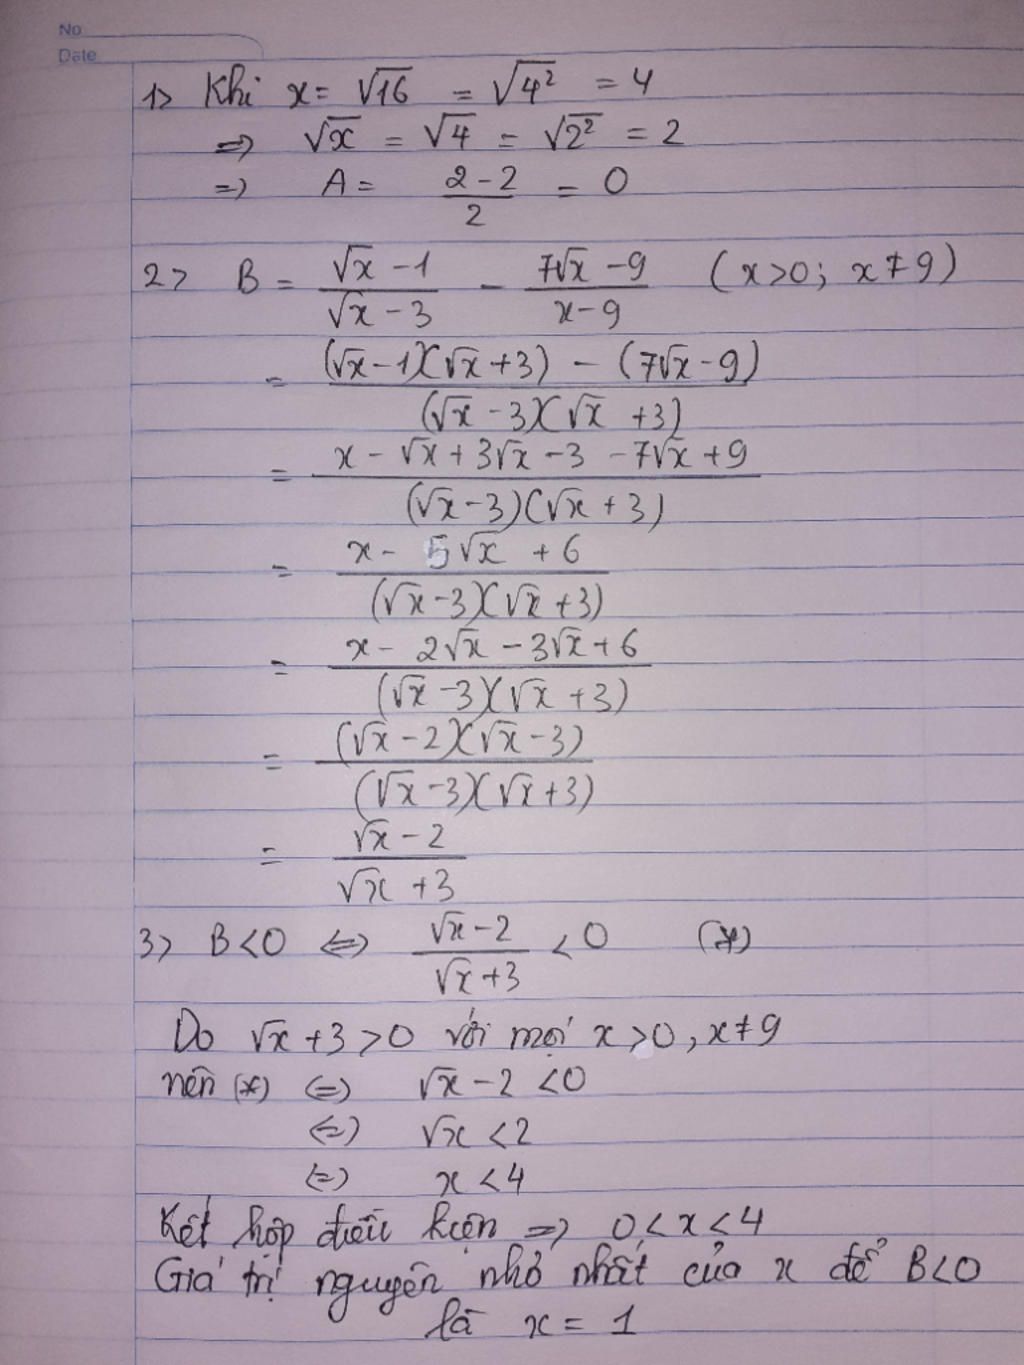 No
Date
1> Khi x = √16 = √4² = 4
=> √x = √4 = √2² = 2
=> A = (2 - 2)/2 = 0
2> B = (√x - 1)/(√x - 3) - (7√x - 9)/(x - 9) (x>0; x≠9)
= ((√x - 1)(√x + 3) - (7√x - 9))/((√x - 3)(√x + 3))
= (x - √x + 3√x - 3 - 7√x + 9)/((√x - 3)(√x + 3))
= (x - 5√x + 6)/((√x - 3)(√x + 3))
= (x - 2√x - 3√x + 6)/((√x - 3)(√x + 3))
= ((√x - 2)(√x - 3))/((√x - 3)(√x + 3))
= (√x - 2)/(√x + 3)
3> B<0 <=> (√x - 2)/(√x + 3) < 0 (*)
Do √x + 3 > 0 với mọi x>0, x≠9
nên (*) <=> √x - 2 < 0
<=> √x < 2
<=> x < 4
Kết hợp điều kiện => 0 < x < 4
Giá trị nguyên nhỏ nhất của x để B<0
là x = 1